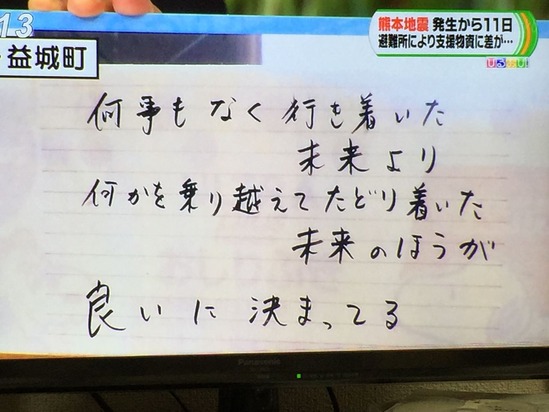 13
益城町
熊本地震 発生から11日
避難所により支援物資に差が…
ひるおび!
何事もなく行き着いた
未来より
何かを乗り越えてたどり着いた
未来のほうが
良いに決まってる
Panasonic